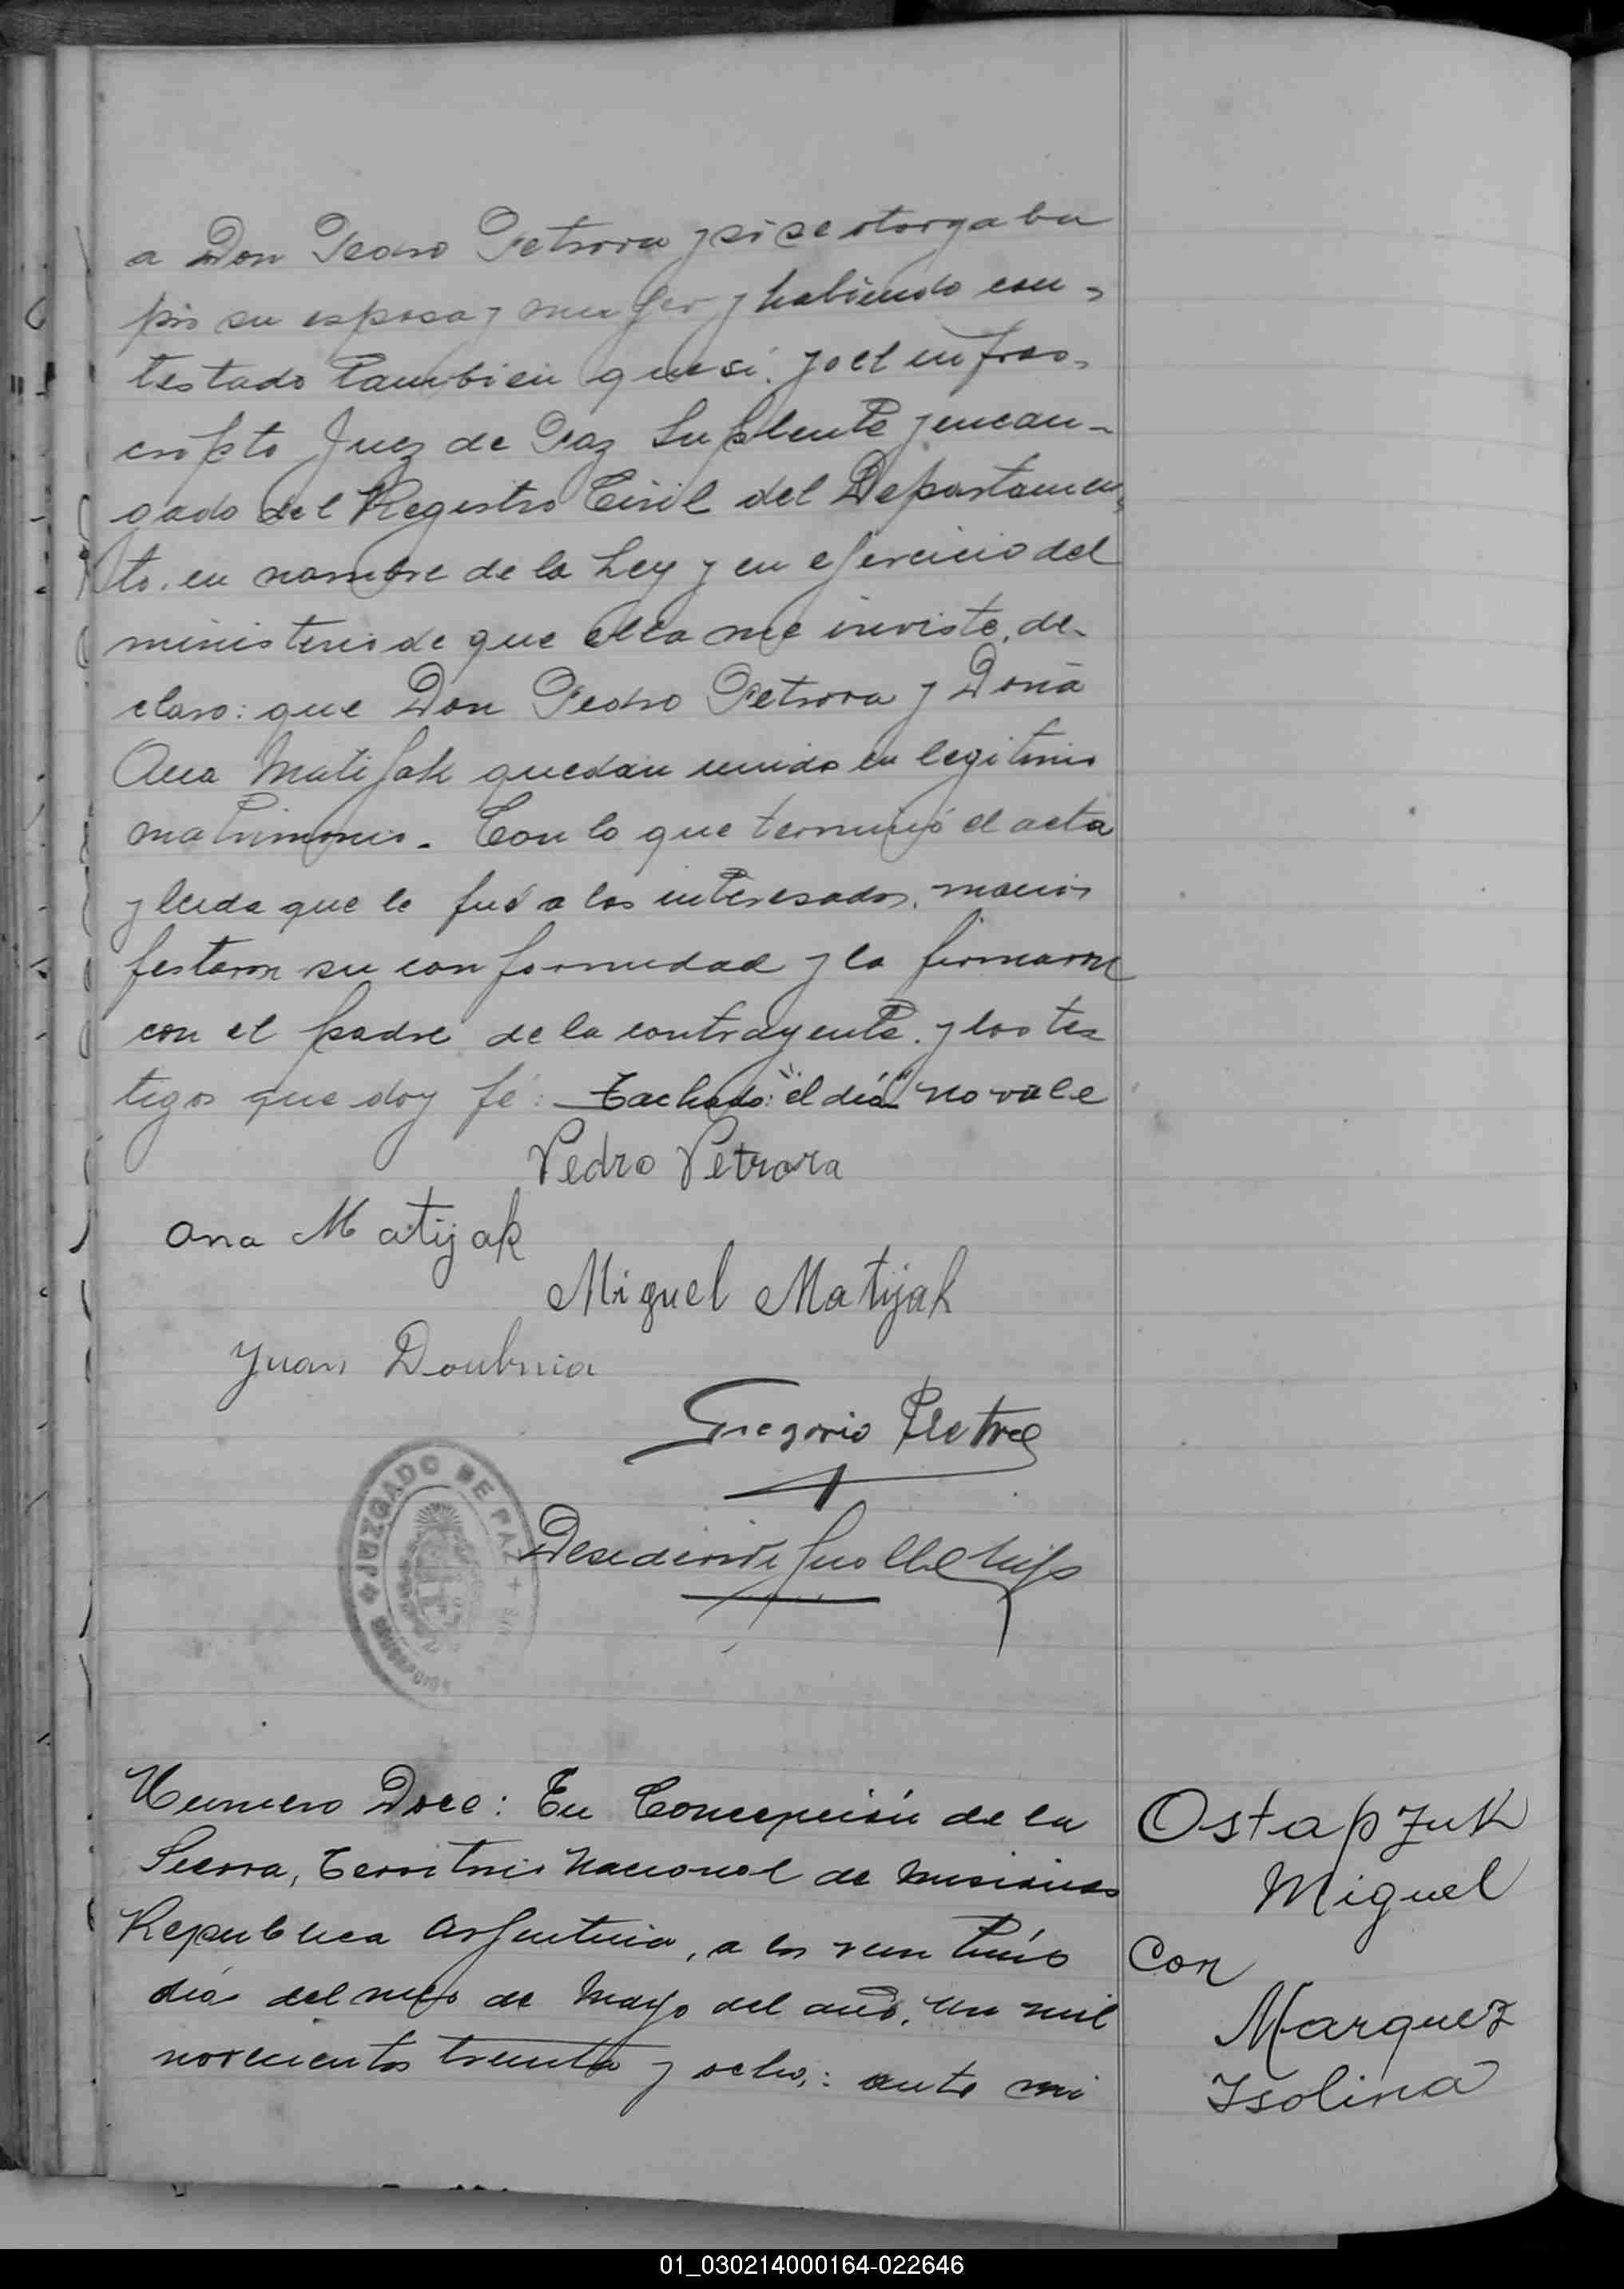 a Don Pedro Petrova y si se otorgaba
por su esposa y mujer y habiendo con-
testado tambien que si. yo el infras-
cripto Juez de Paz Suplente y encar-
gado del Registro Civil del Departamen-
to. en nombre de la Ley y en ejercicio del
ministerio de que ella me inviste, de-
claro: que Don Pedro Petrova y Doña
Ana Matijak quedan unidos en legitimo
matrimonio. Con lo que terminó el acta
y leida que le fué a los interesados, manis
festaron su conformidad y la firmaron
con el padre de la contrayente. y los tes
tigos que doy fé: Tachado: "el día" no vale
Pedro Petrova
Ana Matijak
Miguel Matijak
Juan Doubnia
Gregorio
JUZGADO DE PAZ
Numero Doce: En Concepción de la
Sierra, Territorio Nacional de Misiones
Republica Argentina, a los veintiún
día del mes de Mayo del año, un mil
novecientos treinta y ocho,: ante mi
Ostapzuk
Miguel
Con
Marquez
Isolina
01_030214000164-022646